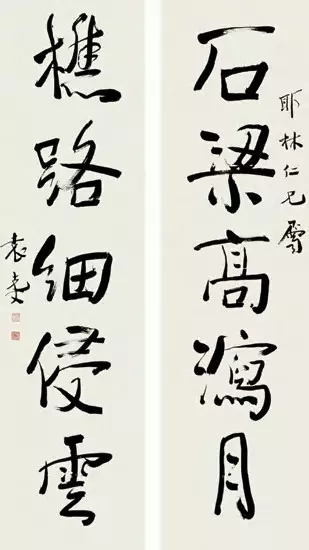 石梁高瀉月
耶林仁兄屬
樵路細侵雲
袁克文